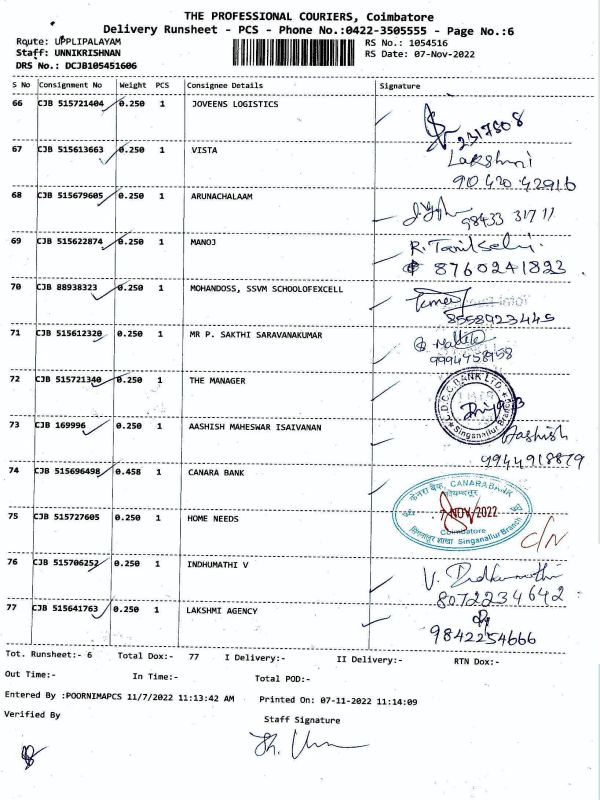 THE PROFESSIONAL COURIERS, Coimbatore
Delivery Runsheet - PCS - Phone No.:0422-3505555 - Page No.:6
Route: UPPLIPALAYAM RS No.: 1054516
Staff: UNNIKRISHNAN RS Date: 07-Nov-2022
DRS No.: DCJB105451606
S No Consignment No Weight PCS Consignee Details Signature
66 CJB 515721404 0.250 1 JOVEENS LOGISTICS
2317808
67 CJB 515613663 0.250 1 VISTA Lakshmi
90420 42916
68 CJB 515679605 0.250 1 ARUNACHALAAM
98433 31711
69 CJB 515622874 0.250 1 MANOJ R. Tamilselvi
8760241823
70 CJB 88938323 0.250 1 MOHANDOSS, SSVM SCHOOLOFEXCELL
8558923445
71 CJB 515612320 0.250 1 MR P. SAKTHI SARAVANAKUMAR
9994758958
72 CJB 515721340 0.250 1 THE MANAGER
D.C.C. BANK LTD.
Singanallur Branch
73 CJB 169996 0.250 1 AASHISH MAHESWAR ISAIVANAN Aashish
9944918879
74 CJB 515696498 0.458 1 CANARA BANK
केनरा बैंक, CANARA BANK
NOV 2022
Coimbatore
Singanallur Branch
75 CJB 515727605 0.250 1 HOME NEEDS C/N
76 CJB 515706252 0.250 1 INDHUMATHI V V. Indhumathi
8072234642
77 CJB 515641763 0.250 1 LAKSHMI AGENCY
9842254666
Tot. Runsheet:- 6 Total Dox:- 77 I Delivery:- II Delivery:- RTN Dox:-
Out Time:- In Time:- Total POD:-
Entered By :POORNIMAPCS 11/7/2022 11:13:42 AM Printed On: 07-11-2022 11:14:09
Verified By Staff Signature